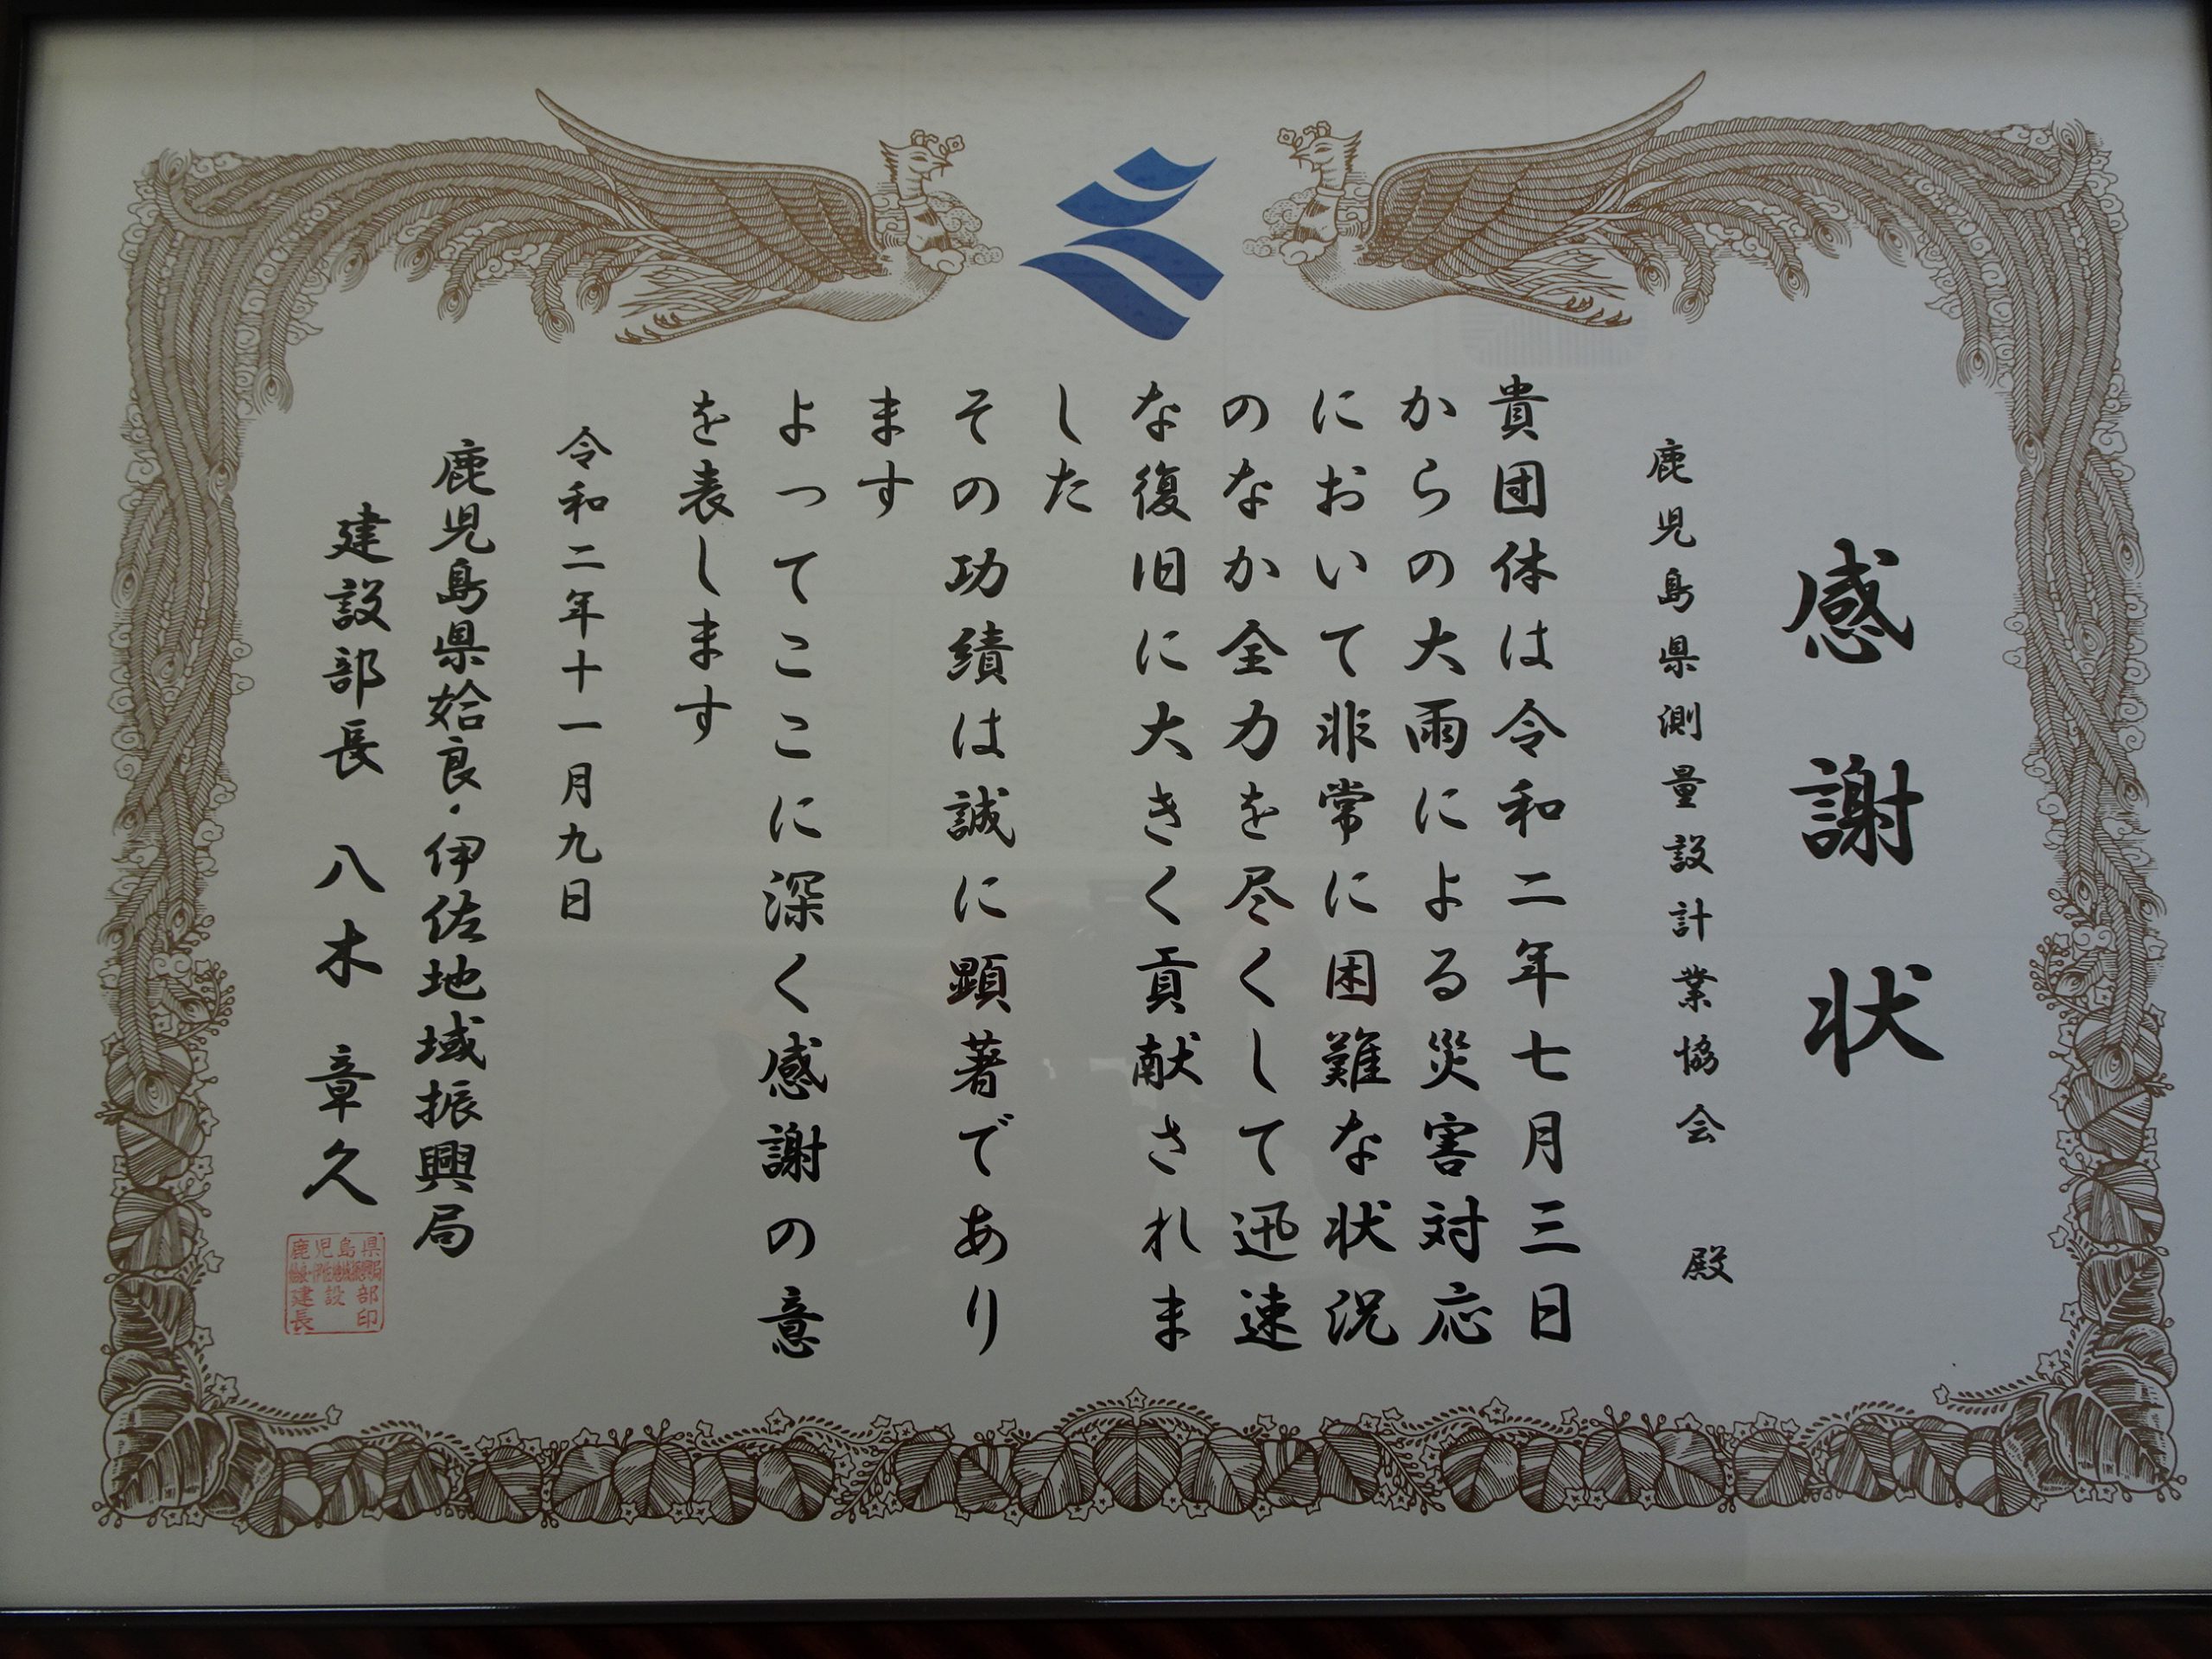 感謝状
鹿児島県測量設計業協会 殿
貴団体は令和二年七月三日
からの大雨による災害対応
において非常に困難な状況
のなか全力を尽くして迅速
な復旧に大きく貢献されま
した
その功績は誠に顕著であり
ます
よってここに深く感謝の意
を表します
令和二年十一月九日
鹿児島県姶良・伊佐地域振興局
建設部長 八木章久
鹿児島県
建設部
長印